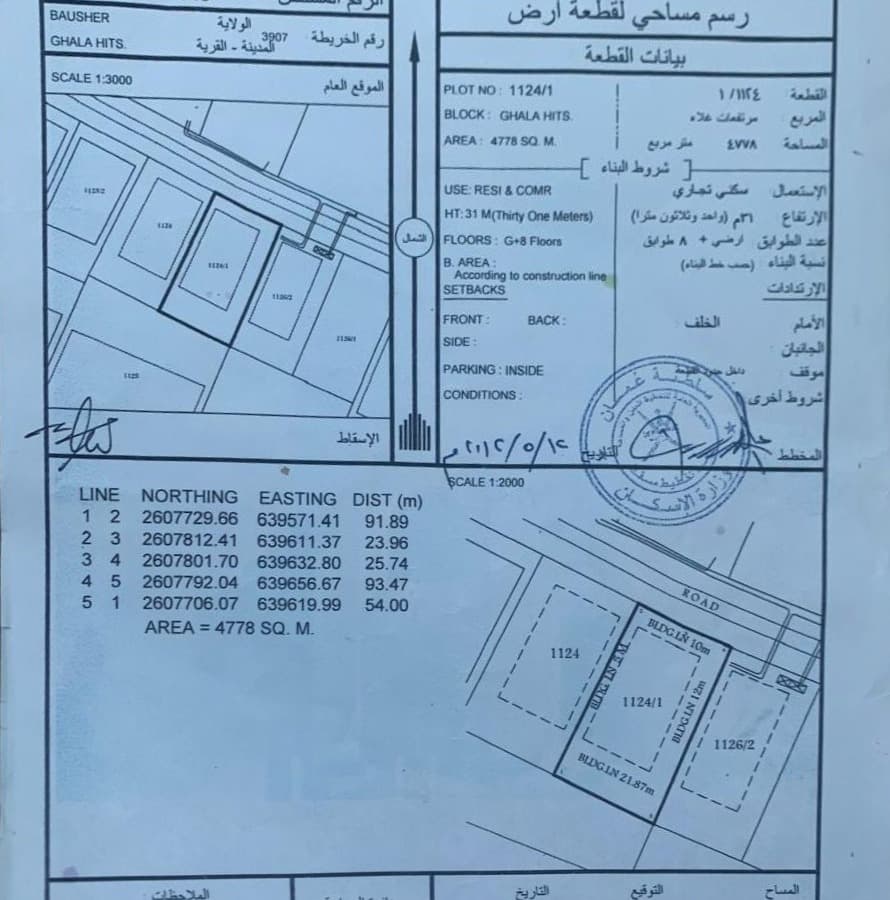 رسم مساحي لقطعة ارض
BAUSHER
الولاية
GHALA HITS.
المدينة - القرية
3907
رقم الخريطة
SCALE 1:3000
الموقع العام
1125/2
1124
1124/1
1126/2
1126/1
1125
الإسقاط
الشمال
بيانات القطعة
PLOT NO : 1124/1
القطعة ١١٢٤/١
BLOCK : GHALA HITS.
المربع مرتفعات غلاء
AREA : 4778 SQ. M.
المساحة ٤٧٧٨ متر مربع
[ شروط البناء ]
USE: RESI & COMR
الإستعمال سكني تجاري
HT: 31 M(Thirty One Meters)
الإرتفاع ٣١م (واحد وثلاثون مترا)
FLOORS : G+8 Floors
عدد الطوابق ارضي + ٨ طوابق
B. AREA :
According to construction line
نسبة البناء (حسب خط البناء)
SETBACKS
الإرتدادات
FRONT : BACK :
الأمام الخلف
SIDE :
الجانبان
PARKING : INSIDE
موقف داخل حدود القطعة
CONDITIONS :
شروط أخرى
المخطط
التاريخ
سلطنة عمان
وزارة الإسكان
LINE NORTHING EASTING DIST (m)
1 2 2607729.66 639571.41 91.89
2 3 2607812.41 639611.37 23.96
3 4 2607801.70 639632.80 25.74
4 5 2607792.04 639656.67 93.47
5 1 2607706.07 639619.99 54.00
AREA = 4778 SQ. M.
SCALE 1:2000
ROAD
1124
BLDG.LN 10m
BLDG. LN 5 M.
1124/1
BLDG.LN 12m
BLDG.LN 21.87m
1126/2
المساح
التوقيع
التاريخ
الملاحظات